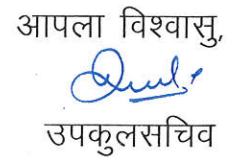 आपला विश्वासु,
उपकुलसचिव